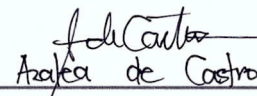 Azalea de Castro